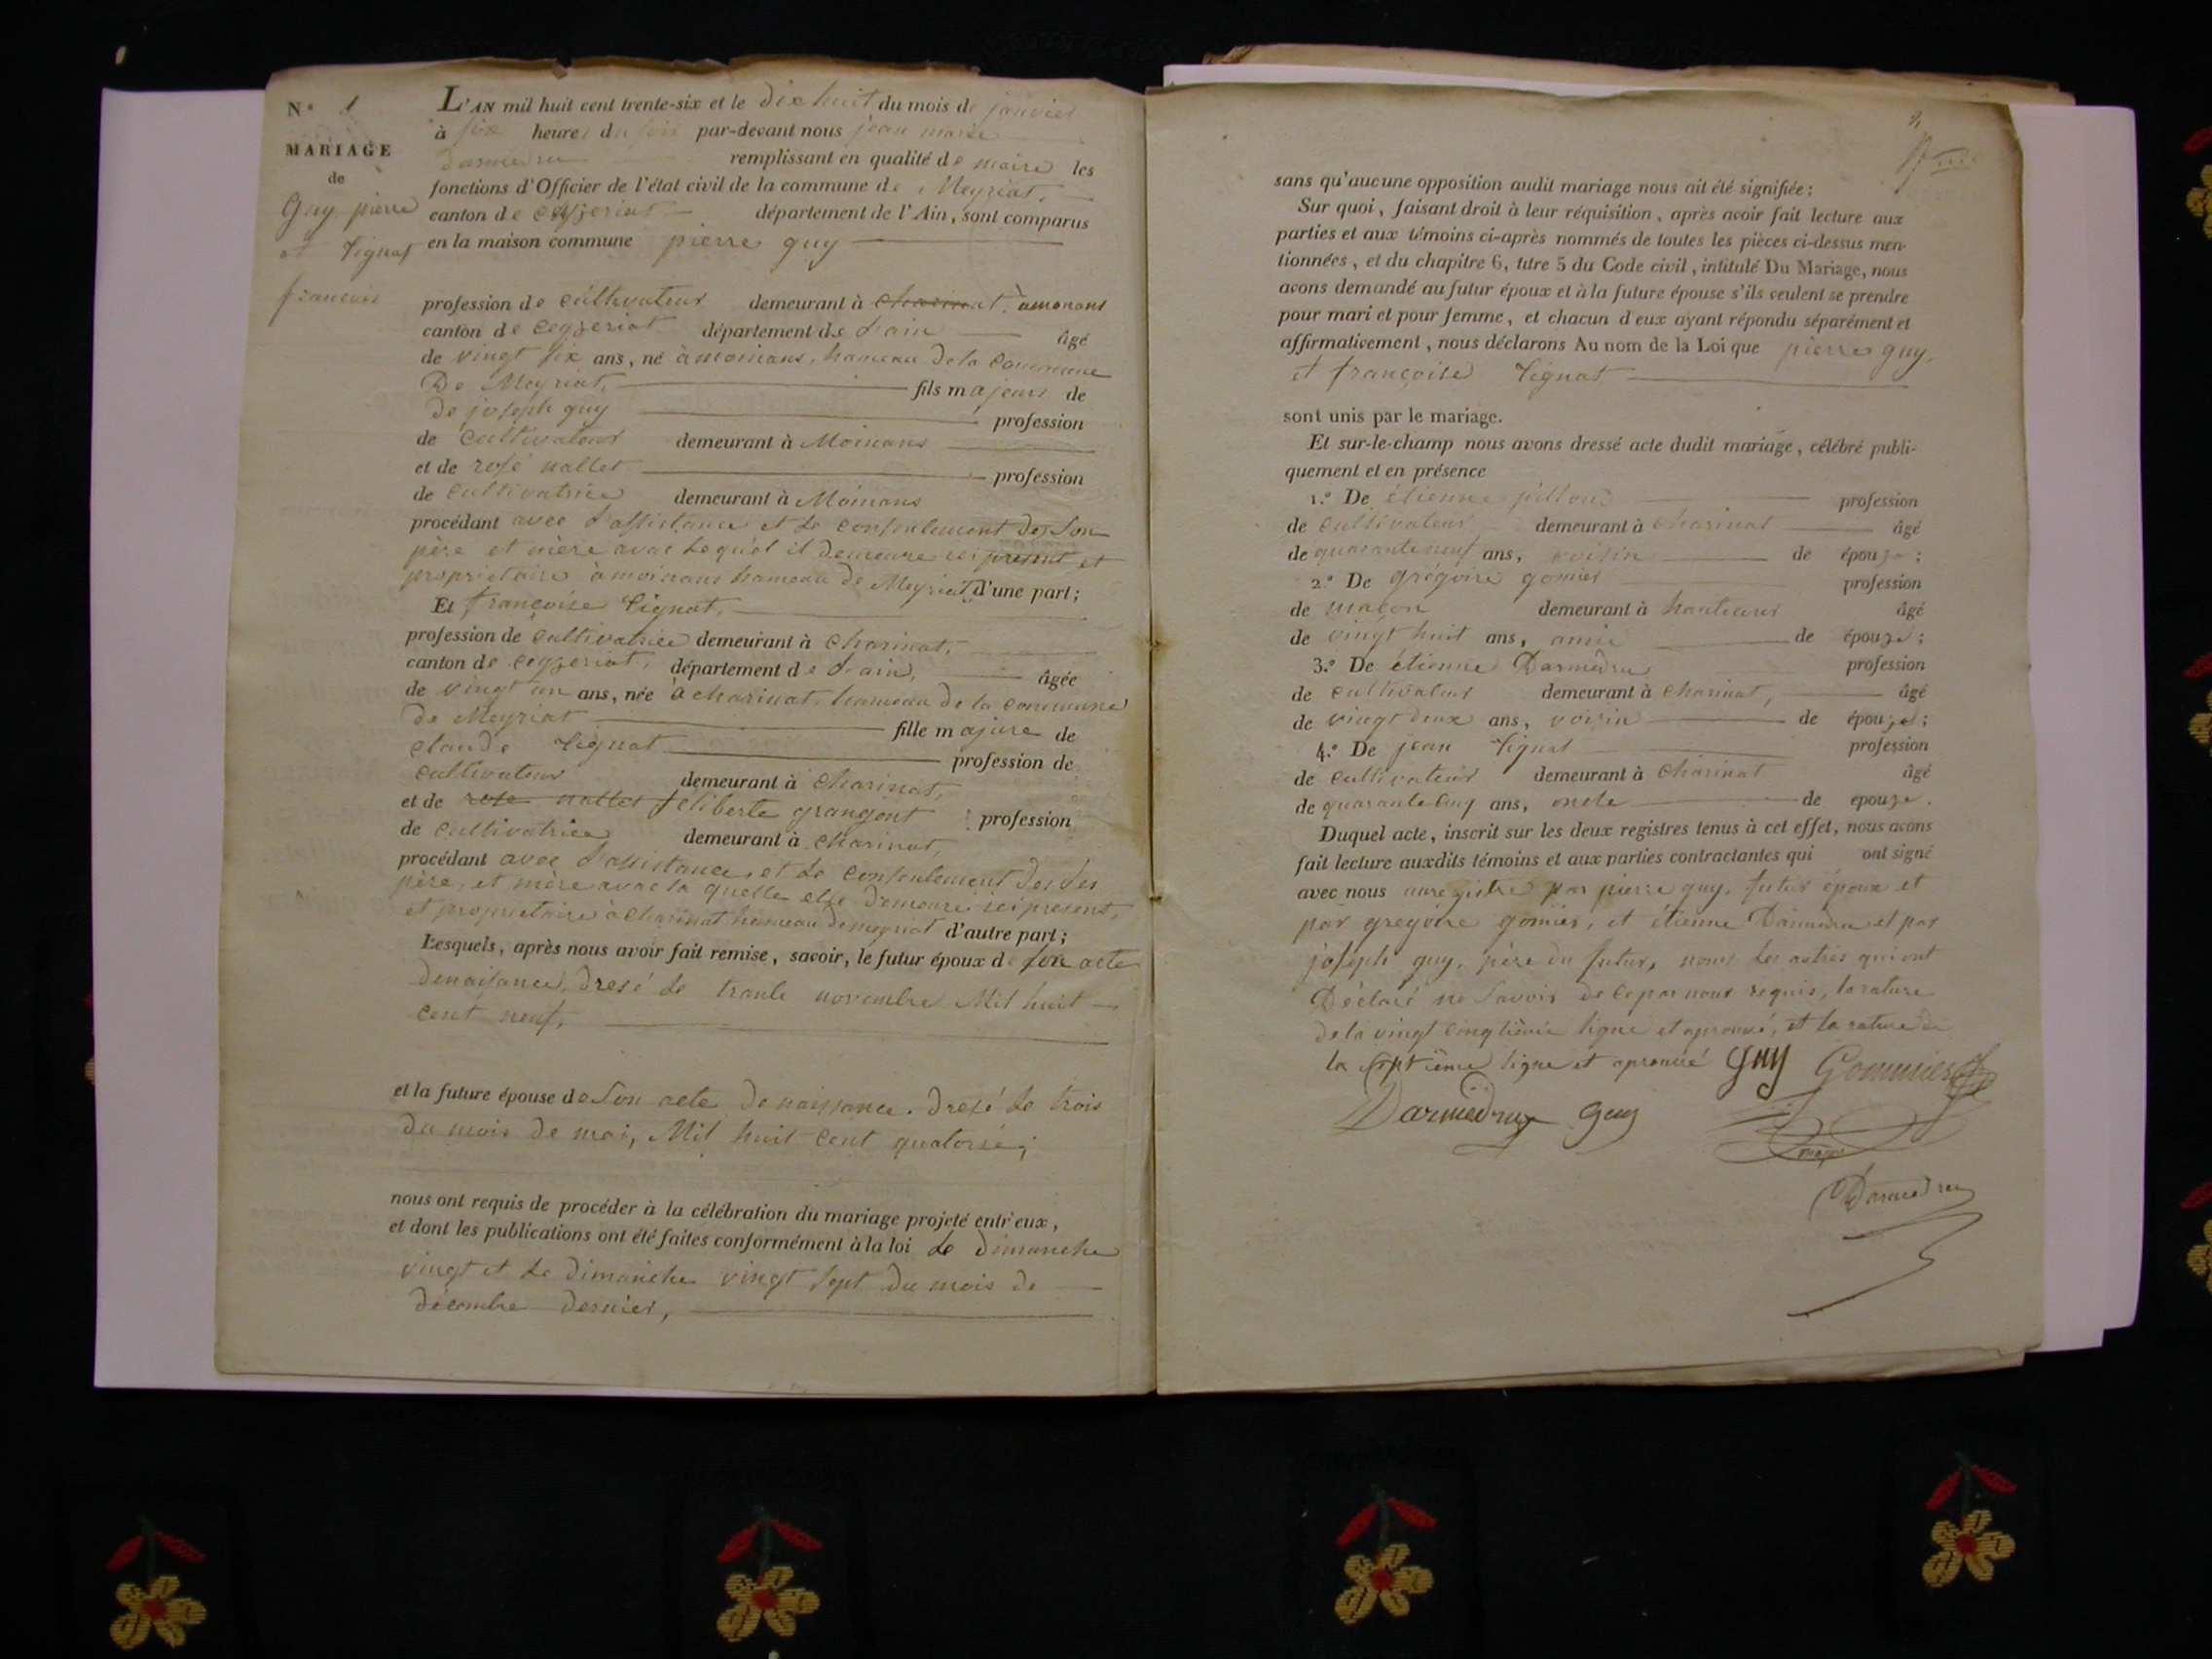 N° 1
MARIAGE
de
Guy pierre
et Tignat
francoise
L'AN mil huit cent trente-six et le dix huit du mois de janvier
à six heures du soir par-devant nous jean marie
Darmedru remplissant en qualité de maire les
fonctions d'Officier de l'état civil de la commune de Meyriat,
canton de ceyzeriat département de l'Ain, sont comparus
en la maison commune pierre guy
profession de cultivateur demeurant à
canton de ceyzeriat département de l'ain âgé
de vingt six ans, né à moinans, hameau de la commune
De Meyriat, fils majeur de
de joseph guy profession
de cultivateur demeurant à Moinans
et de rose nallet profession
de cultivatrice demeurant à Moinans
procédant avec l'assistance et le consentement de son
père et mère avec lequel il demeure ici present et
proprietaire à moinans hameau de Meyriat d'une part;
Et françoise Tignat,
profession de cultivatrice demeurant à charinat,
canton de ceyzeriat, département de l'ain, âgée
de vingt un ans, née à charinat, hameau de la commune
De Meyriat fille majure de
claude Tignat profession de
cultivateur demeurant à charinat,
et de rose nallet feliberte grangont profession
de cultivatrice demeurant à charinat,
procédant avec l'assistance, et le consentement de ses
père, et mère avec la quelle elle demeure ici present,
et proprietaire à charinat hameau de meyriat d'autre part;
Lesquels, après nous avoir fait remise, savoir, le futur époux de son acte
denaissance, dresé le trante novembre Mil huit
cent neuf,
et la future épouse de son acte de naissance. dresé le trois
du mois de mai, Mil huit cent quatorse;
nous ont requis de procéder à la célébration du mariage projeté entr'eux,
et dont les publications ont été faites conformément à la loi le dimanche
vingt et le dimanche vingt sept du mois de
décembre dernier,
sans qu'aucune opposition audit mariage nous ait été signifiée;
Sur quoi, faisant droit à leur réquisition, après avoir fait lecture aux
parties et aux témoins ci-après nommés de toutes les pièces ci-dessus men-
tionnées, et du chapitre 6, titre 5 du Code civil, intitulé Du Mariage, nous
avons demandé au futur époux et à la future épouse s'ils veulent se prendre
pour mari et pour femme, et chacun d'eux ayant répondu séparément et
affirmativement, nous déclarons Au nom de la Loi que pierre guy,
et françoise Tignat
sont unis par le mariage.
Et sur-le-champ nous avons dressé acte dudit mariage, célébré publi-
quement et en présence
1.° De étienne pillon profession
de cultivateur demeurant à charinat âgé
de quarante neuf ans, voisin de épouze;
2.° De grégoire gomier profession
de maçon demeurant à âgé
de vingt huit ans, amie de épouze;
3.° De étienne Darmedru profession
de cultivateur demeurant à charinat, âgé
de vingt deux ans, voisin de épouze;
4.° De jean Tignat profession
de cultivateur demeurant à charinat âgé
de quarante cinq ans, oncle de epouze.
Duquel acte, inscrit sur les deux registres tenus à cet effet, nous avons
fait lecture auxdits témoins et aux parties contractantes qui ont signé
avec nous au registre par pierre guy, futur époux et
par gregoire gomier, et étienne Darmedru et par
joseph guy, père du futur, nous les autres qui ont
Déclaré ne savoir de ce par nous requis, la rature
de la vingt cinqtième ligne et aprouvé, et la rature de
la septième ligne et aprouvé Guy Gommier
Darmedru guy
maire
Darmedru